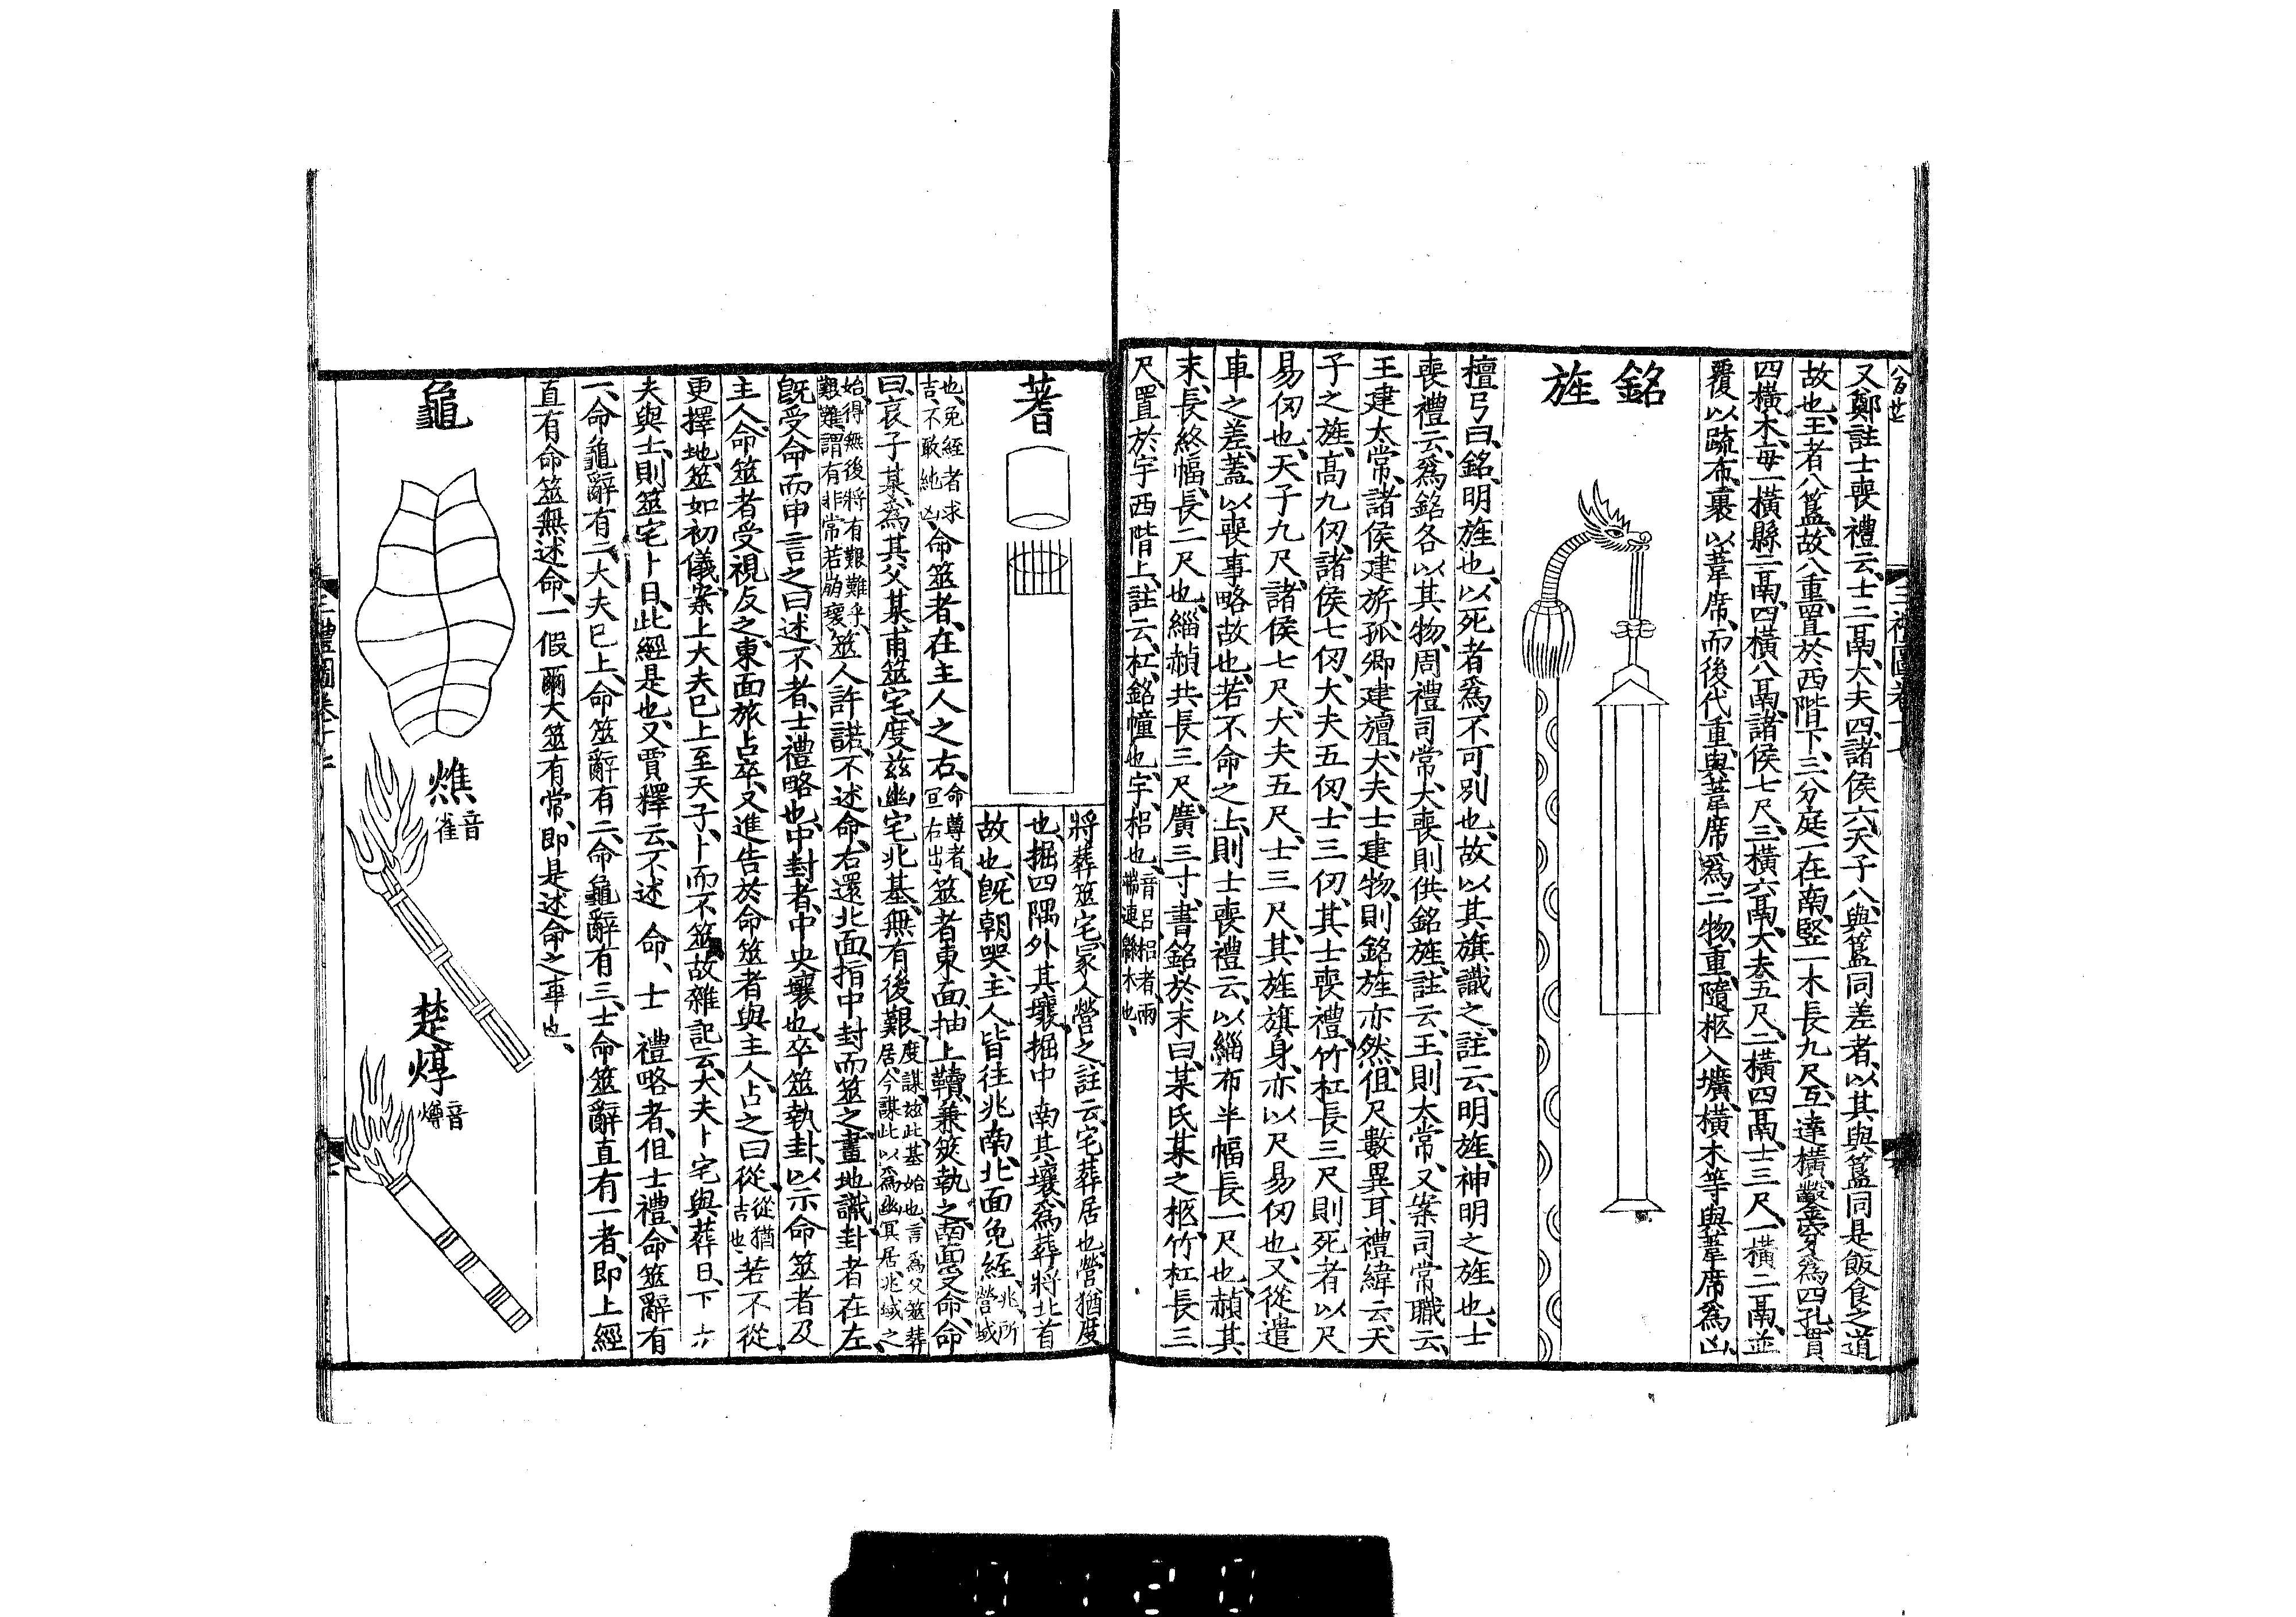 又鄭註士喪禮云士二鬲大夫四諸侯六天子八與簋同差者以其與簋同是飯食之道
故也王者八簋故八重置於西階下三分庭一在南豎一木長九尺互達橫鑿旁爲四孔貫
四橫木每一橫縣二鬲四橫八鬲諸侯七尺三橫六鬲大夫五尺二橫四鬲士三尺一橫二鬲並
覆以疏布裹以葦席而後代重與葦席爲二物重隨柩入壙橫木等與葦席爲凶
銘旌
檀弓曰銘明旌也以死者爲不可別也故以其旗識之註云明旌神明之旌也士
喪禮云爲銘各以其物周禮司常大喪則供銘旌註云王則太常又案司常職云
王建太常諸侯建旂孤卿建旜大夫士建物則銘旌亦然但尺數異耳禮緯云天
子之旌高九仞諸侯七仞大夫五仞士三仞其士喪禮竹杠長三尺則死者以尺
易仞也天子九尺諸侯七尺大夫五尺士三尺其旌旗身亦以尺易仞也又從遣
車之差蓋以喪事略故也若不命之上則士喪禮云以緇布半幅長一尺也赬其
末長終幅長二尺也緇赬共長三尺廣三寸書銘於末曰某氏某之柩竹杠長三
尺置於宇西階上註云杠銘橦也宇梠也音呂梠者兩端連緜木也
蓍
將葬筮宅冢人營之註云宅葬居也營猶度
也掘四隅外其壤掘中南其壤爲葬將北首
故也旣朝哭主人皆往兆南北面免絰兆所營域
也免絰者求吉不敢純凶命筮者在主人之右命尊者宣右出筮者東面抽上韇兼筴執之南面受命命
曰哀子某爲其父某甫筮宅度茲幽宅兆基無有後艱度謀茲此基始也言爲父筮葬居今謀此以爲幽冥居兆域之
始得無後將有艱難乎艱難謂有非常若崩壞筮人許諾不述命右還北面指中封而筮之畫地識卦者在左
旣受命而申言之曰述不者士禮略也中封者中央壤也卒筮執卦以示命筮者及
主人命筮者受視反之東面旅占卒又進告於命筮者與主人占之曰從從猶吉也若不從
更擇地筮如初儀案上大夫已上至天子卜而不筮故雜記云大夫卜宅與葬日下大
夫與士則筮宅卜日此經是也又賈釋云不述命士禮略者但士禮命筮辭有
一命龜辭有二大夫已上命筮辭有二命龜辭有三士命筮辭直有一者即上經
直有命筮無述命一假爾大筮有常即是述命之事也
龜
燋音雀
楚焞音燇
三禮圖卷十七
0120